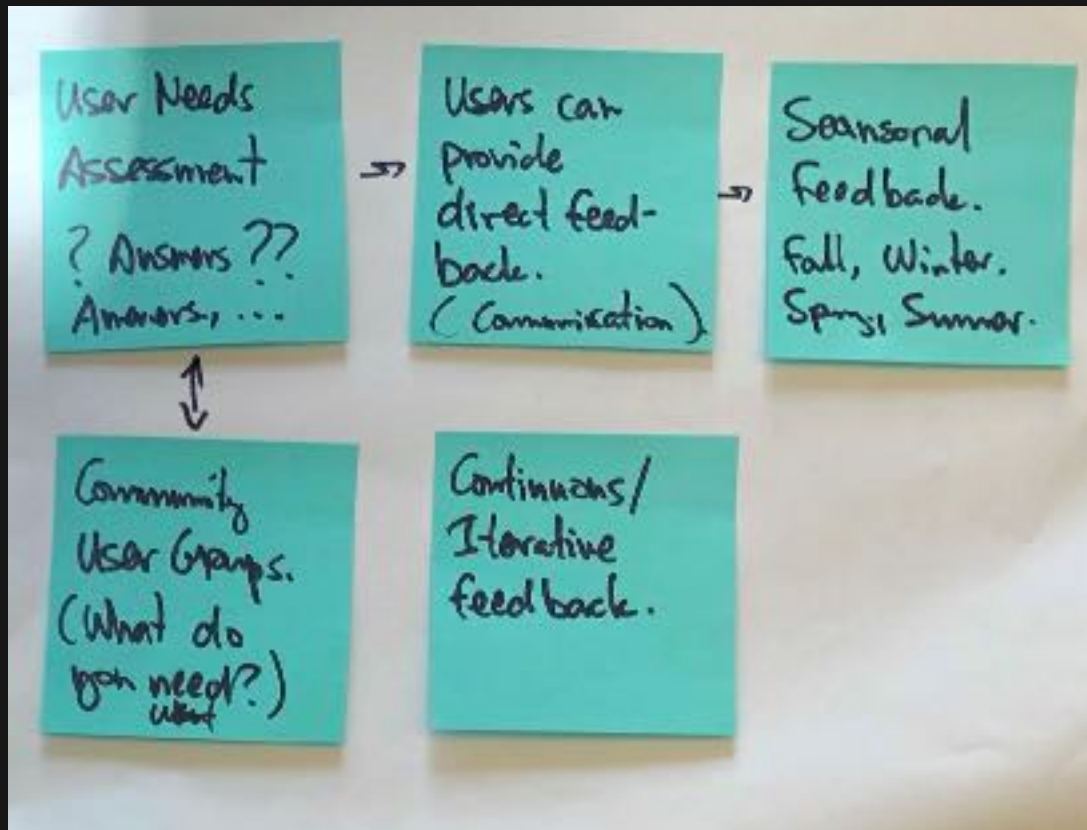 User Needs
Assessment
? Answers ??
Answers, ...
Users can
provide
direct feed-
back.
(Communication)
Seansonal
feedback.
Fall, Winter.
Spring, Summer.
Community
User Groups.
(What do
you need?)
want
Continuous/
Iterative
feedback.